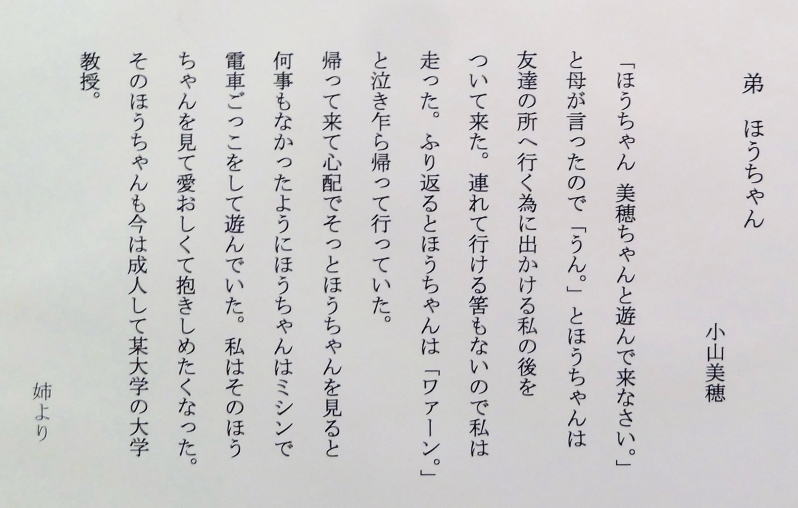 弟　ほうちゃん
小山美穂
「ほうちゃん 美穂ちゃんと遊んで来なさい。」
と母が言ったので「うん。」とほうちゃんは
友達の所へ行く為に出かける私の後を
ついて来た。連れて行ける筈もないので私は
走った。ふり返るとほうちゃんは「ワァーン。」
と泣き乍ら帰って行っていた。
帰って来て心配でそっとほうちゃんを見ると
何事もなかったようにほうちゃんはミシンで
電車ごっこをして遊んでいた。私はそのほう
ちゃんを見て愛おしくて抱きしめたくなった。
そのほうちゃんも今は成人して某大学の大学
教授。
姉より